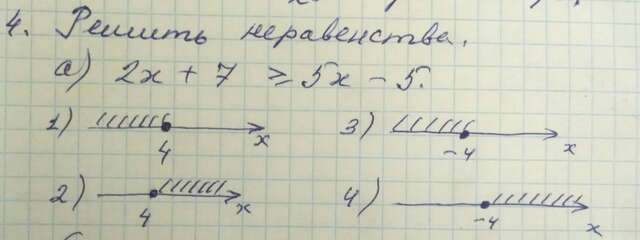 4. Решить неравенства.
а) 2x + 7 ⩾ 5x - 5.
1) 4 x
3) -4 x
2) 4 x
4) -4 x